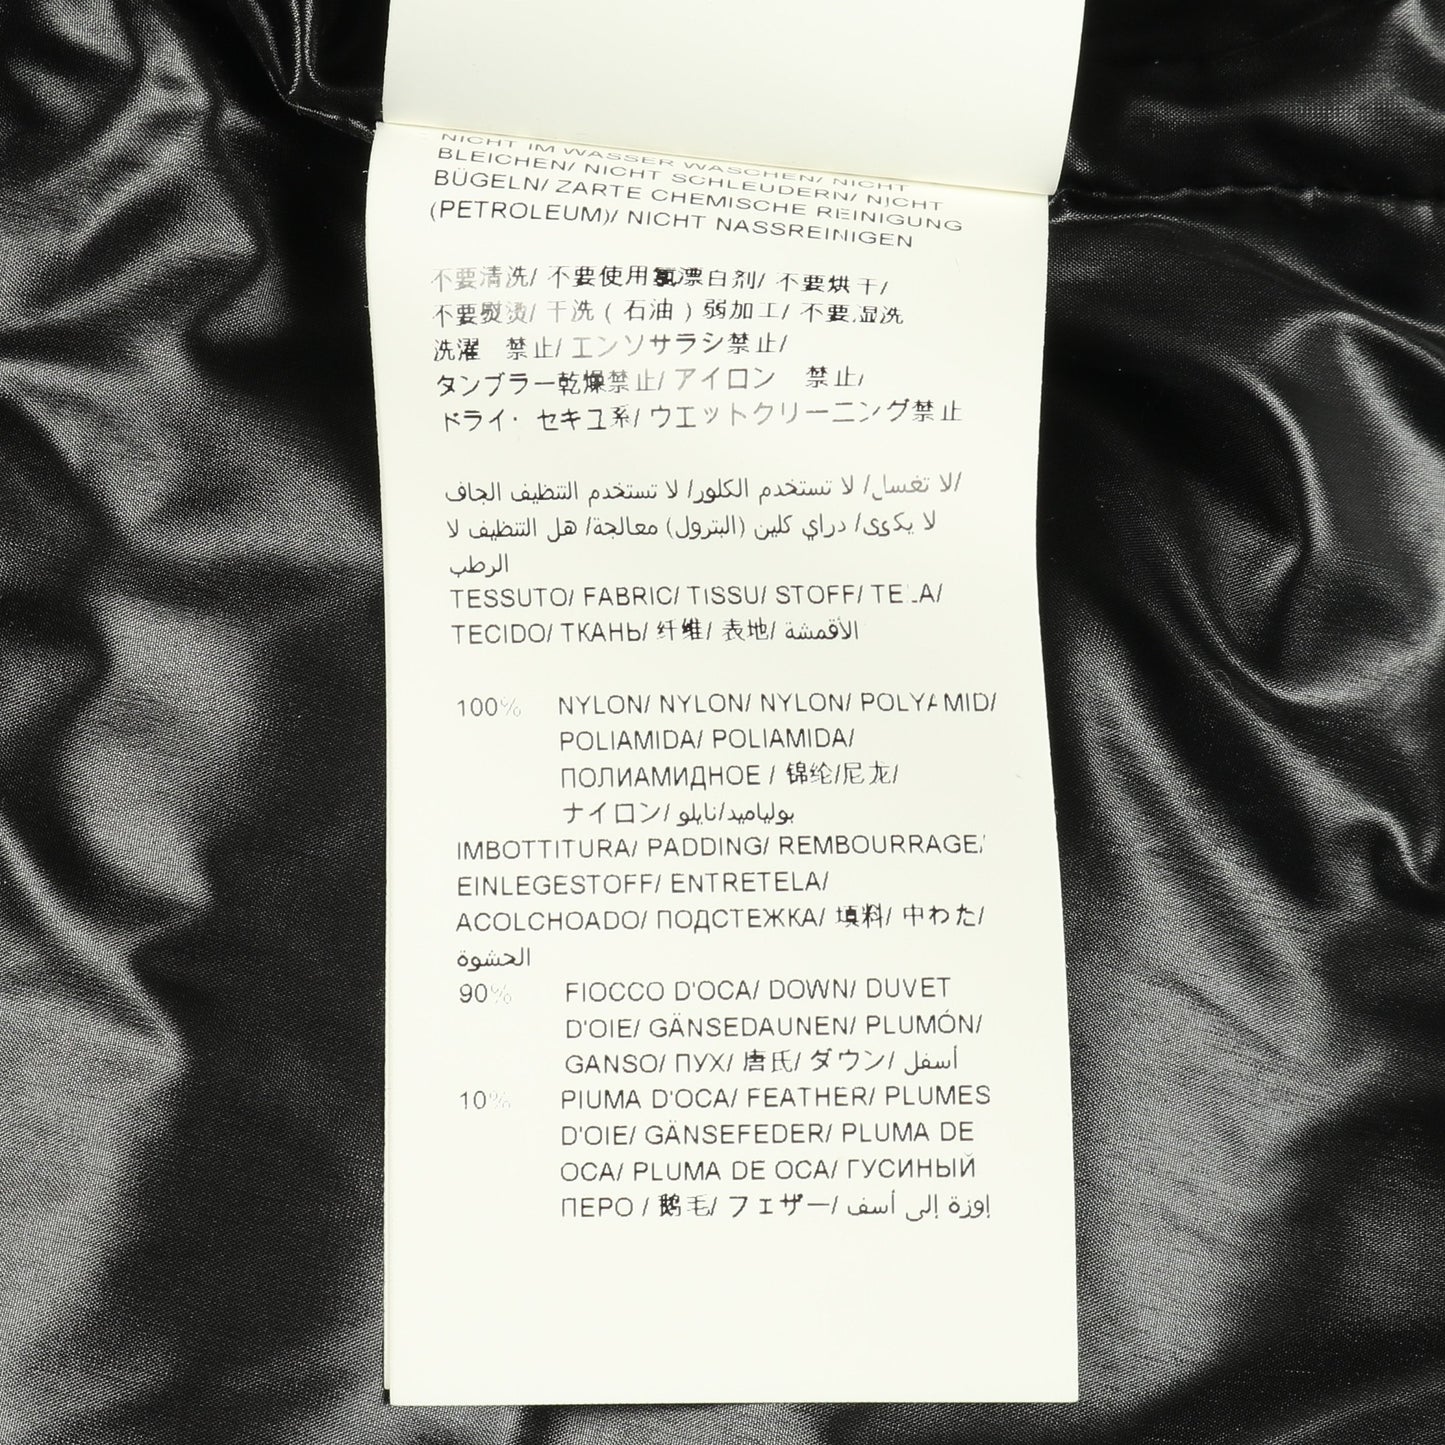 NICHT IM WASSER WASCHEN/ NICHT
BLEICHEN/ NICHT SCHLEUDERN/ NICHT
BÜGELN/ ZARTE CHEMISCHE REINIGUNG
(PETROLEUM)/ NICHT NASSREINIGEN
不要清洗/ 不要使用氯漂白剂/ 不要烘干/
不要熨烫/ 干洗 ( 石油 ) 弱加工/ 不要湿洗
洗濯 禁止/ エンソサラシ禁止/
タンブラー乾燥禁止/ アイロン 禁止/
ドライ・ セキユ系/ ウエットクリーニング禁止
لا تغسل/ لا تستخدم الكلور/ لا تستخدم التنظيف الجاف/
لا يكوى/ دراي كلين (البترول) معالجة/ هل التنظيف لا
الرطب
TESSUTO/ FABRIC/ TISSU/ STOFF/ TELA/
TECIDO/ ТКАНЬ/ 纤维/ 表地/ الأقمشة
100% NYLON/ NYLON/ NYLON/ POLYAMID/
POLIAMIDA/ POLIAMIDA/
ПОЛИАМИДНОЕ / 锦纶/尼龙/
ナイロン/ بولياميد/نايلو
IMBOTTITURA/ PADDING/ REMBOURRAGE/
EINLEGESTOFF/ ENTRETELA/
ACOLCHOADO/ ПОДСТЕЖКА/ 填料/ 中わた/
الحشوة
90% FIOCCO D'OCA/ DOWN/ DUVET
D'OIE/ GÄNSEDAUNEN/ PLUMÓN/
GANSO/ ПУХ/ 唐氏/ ダウン/ أسفل
10% PIUMA D'OCA/ FEATHER/ PLUMES
D'OIE/ GÄNSEFEDER/ PLUMA DE
OCA/ PLUMA DE OCA/ ГУСИНЫЙ
ПЕРО / 鹅毛/ フェザー/ إوزة إلى أسف